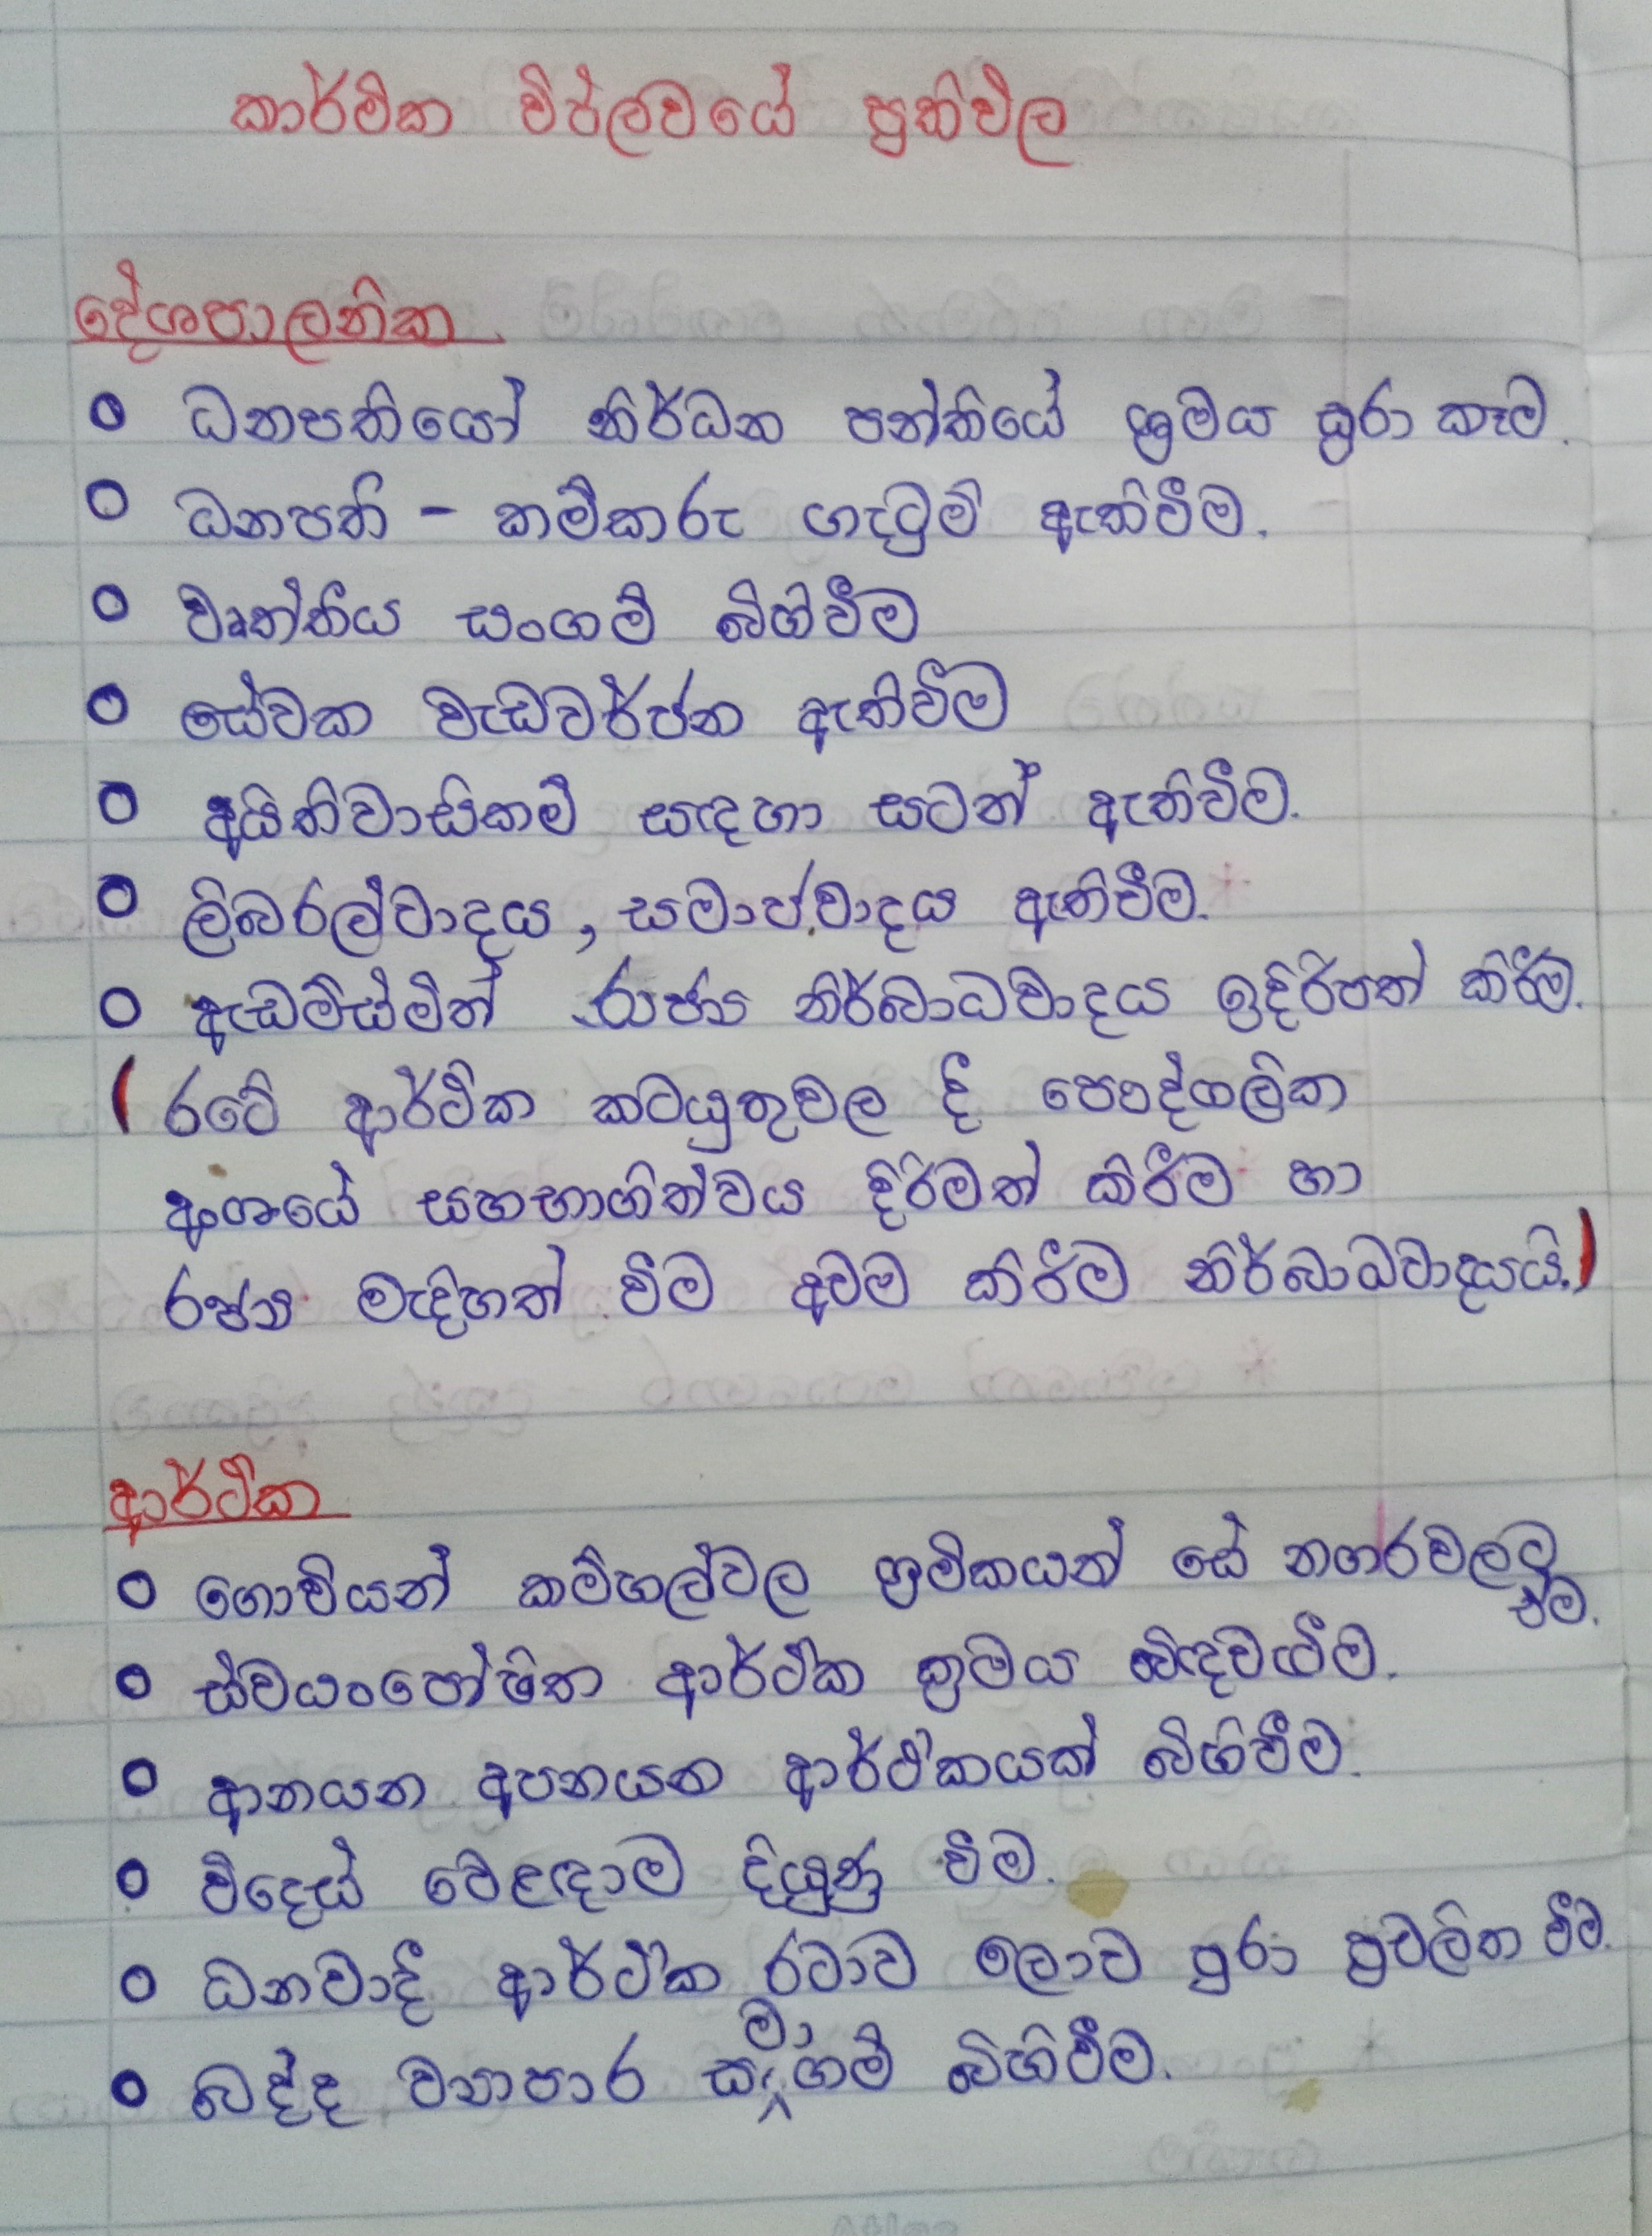 කාර්මික විප්ලවයේ ප්‍රතිඵල
දේශපාලනික
o ධනපතියෝ නිර්ධන පන්තියේ ශ්‍රමය සූරා කෑම.
o ධනපති - කම්කරු ගැටුම් ඇතිවීම.
o වෘත්තීය සංගම් බිහිවීම
o සේවක වැඩවර්ජන ඇතිවීම
o අයිතිවාසිකම් සඳහා සටන් ඇතිවීම.
o ලිබරල්වාදය, සමාජවාදය ඇතිවීම.
o ඇඩම්ස්මිත් රාජ්‍ය නිර්බාධවාදය ඉදිරිපත් කිරීම.
(රටේ ආර්ථික කටයුතුවල දී පෞද්ගලික
අංශයේ සහභාගිත්වය දිරිමත් කිරීම හා
රජ්‍ය මැදිහත් වීම අවම කිරීම නිර්බාධවාදයයි.)
ආර්ථික
o ගොවියන් කම්හල්වල ශ්‍රමිකයන් සේ නගරවලට
ඒම.
o ස්වයංපෝෂිත ආර්ථික ක්‍රමය බිඳවැටීම.
o ආනයන අපනයන ආර්ථිකයක් බිහිවීම.
o විදෙස් වෙළඳාම දියුණු වීම.
o ධනවාදී ආර්ථික රටාව ලොව පුරා ප්‍රචලිත වීම.
o බද්ද ව්‍යාපාර සමාගම් බිහිවීම.